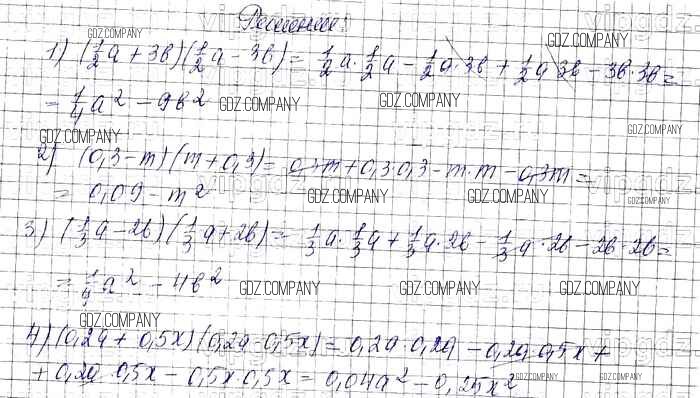 Решение:
GDZ.COMPANY GDZ.COMPANY
1) (1/2a + 3в)(1/2a - 3в) = 1/2a · 1/2a - 1/2a · 3в + 1/2a 3в - 3в · 3в =
= 1/4a² - 9в² GDZ.COMPANY GDZ.COMPANY
GDZ.COMPANY GDZ.COMPANY
2) (0,3 - m)(m + 0,3) = 0,3m + 0,3·0,3 - m·m - 0,3m =
= 0,09 - m² GDZ.COMPANY GDZ.COMPANY GDZ.COMPANY
3) (1/3a - 2в)(1/3a + 2в) = 1/3a · 1/3a + 1/3a · 2в - 1/3a · 2в - 2в · 2в =
= 1/9a² - 4в² GDZ.COMPANY GDZ.COMPANY GDZ.COMPANY
GDZ.COMPANY
4) (0,2a + 0,5x)(0,2a - 0,5x) = 0,2a · 0,2a - 0,2a · 0,5x +
+ 0,2a · 0,5x - 0,5x · 0,5x = 0,04a² - 0,25x²
GDZ.COMPANY GDZ.COMPANY